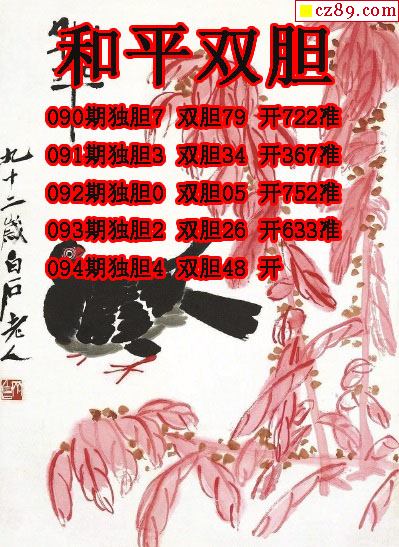 cz89.com
和平
和平双胆
090期独胆7 双胆79 开722准
091期独胆3 双胆34 开367准
092期独胆0 双胆05 开752准
093期独胆2 双胆26 开633准
094期独胆4 双胆48 开
九十二岁白石老人